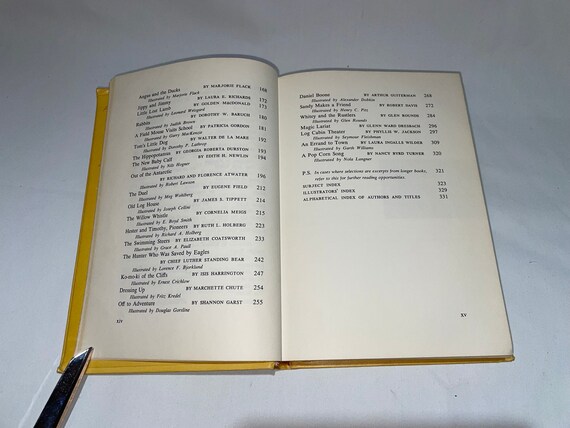 Angus and the Ducks BY MARJORIE FLACK 168
Illustrated by Marjorie Flack
Jippy and Jimmy BY LAURA E. RICHARDS 172
Little Lost Lamb BY GOLDEN MACDONALD 173
Illustrated by Leonard Weisgard
Rabbits BY DOROTHY W. BARUCH 180
Illustrated by Judith Brown
A Field Mouse Visits School BY PATRICIA GORDON 181
Illustrated by Garry MacKenzie
Tom's Little Dog BY WALTER DE LA MARE 191
Illustrated by Dorothy P. Lathrop
The Hippopotamus BY GEORGIA ROBERTS DURSTON 192
The New Baby Calf BY EDITH H. NEWLIN 194
Illustrated by Nils Hogner
Out of the Antarctic
BY RICHARD AND FLORENCE ATWATER 196
Illustrated by Robert Lawson
The Duel BY EUGENE FIELD 212
Illustrated by Meg Wohlberg
Old Log House BY JAMES S. TIPPETT 214
Illustrated by Joseph Cellini
The Willow Whistle BY CORNELIA MEIGS 215
Illustrated by E. Boyd Smith
Hester and Timothy, Pioneers BY RUTH L. HOLBERG 223
Illustrated by Richard A. Holberg
The Swimming Steers BY ELIZABETH COATSWORTH 233
Illustrated by Grace A. Paull
The Hunter Who Was Saved by Eagles
BY CHIEF LUTHER STANDING BEAR 242
Illustrated by Lorence F. Bjorklund
Ko-mo-ki of the Cliffs BY ISIS HARRINGTON 247
Illustrated by Ernest Crichlow
Dressing Up BY MARCHETTE CHUTE 254
Illustrated by Fritz Kredel
Off to Adventure BY SHANNON GARST 255
Illustrated by Douglas Gorsline
xiv
Daniel Boone BY ARTHUR GUITERMAN 268
Illustrated by Alexander Dobkin
Sandy Makes a Friend BY ROBERT DAVIS 272
Illustrated by Henry C. Pitz
Whitey and the Rustlers BY GLEN ROUNDS 284
Illustrated by Glen Rounds
Magic Lariat BY GLENN WARD DRESBACH 296
Illustrated by Seymour Fleishman
Log Cabin Theater BY PHYLLIS W. JACKSON 297
An Errand to Town BY LAURA INGALLS WILDER 309
Illustrated by Garth Williams
A Pop Corn Song BY NANCY BYRD TURNER 320
Illustrated by Nola Langner
P.S. In cases where selections are excerpts from longer books, 321
refer to this for further reading opportunities.
SUBJECT INDEX 323
ILLUSTRATORS' INDEX 329
ALPHABETICAL INDEX OF AUTHORS AND TITLES 331
xv